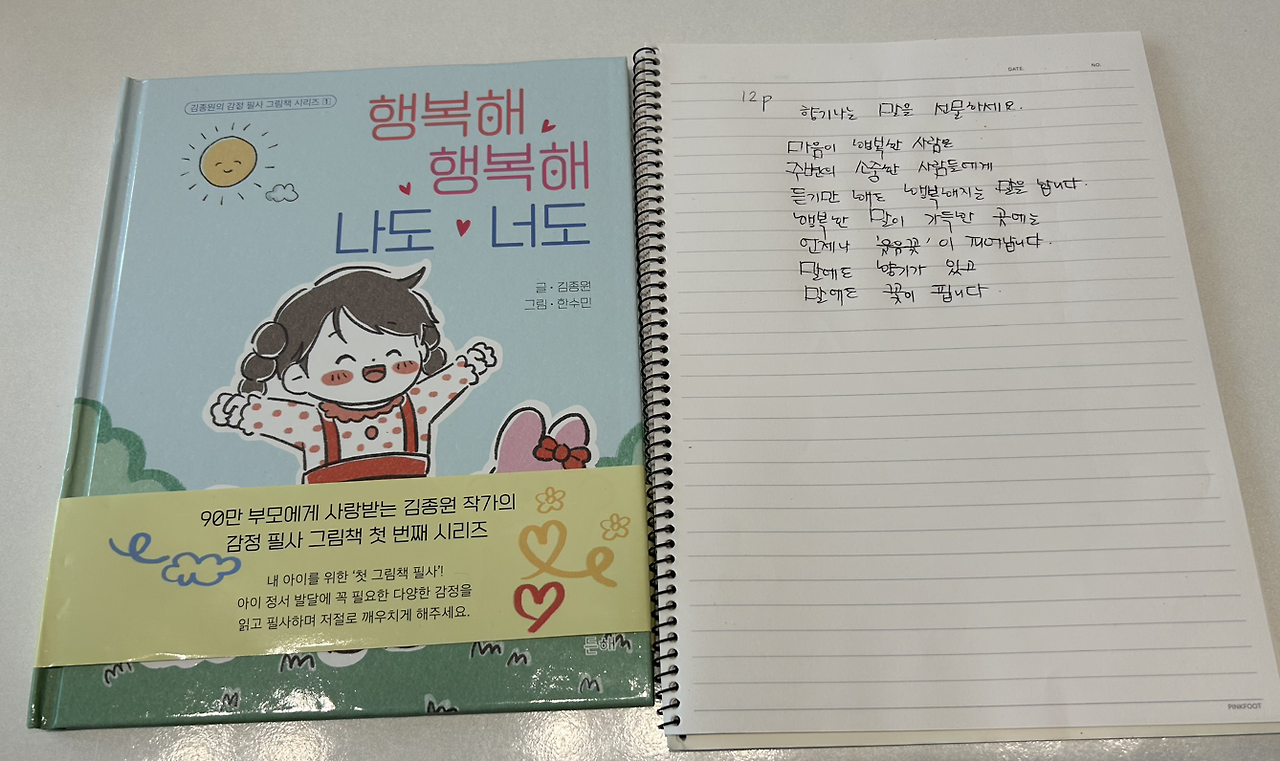 김종원의 감정 필사 그림책 시리즈 1
행복해
행복해
나도 너도
글·김종원
그림·한수민
90만 부모에게 사랑받는 김종원 작가의
감정 필사 그림책 첫 번째 시리즈
내 아이를 위한 '첫 그림책 필사'!
아이 정서 발달에 꼭 필요한 다양한 감정을
읽고 필사하며 저절로 깨우치게 해주세요.
DATE. NO.
12p
향기나는 말을 선물하세요.
마음이 행복한 사람은
주변의 소중한 사람들에게
듣기만 해도 행복해지는 말을 합니다.
행복한 말이 가득한 곳에는
언제나 '웃음꽃'이 피어납니다.
말에도 향기가 있고
말에도 꽃이 핍니다.
PINKFOOT